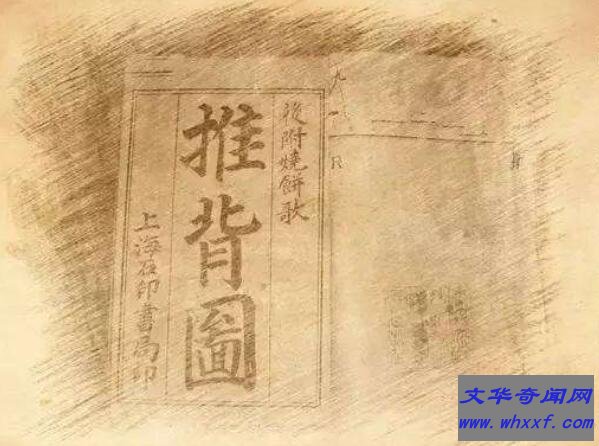 後附燒餅歌
推背圖
上海石印書局印
九
R
文华奇闻网
www.whxxf.com